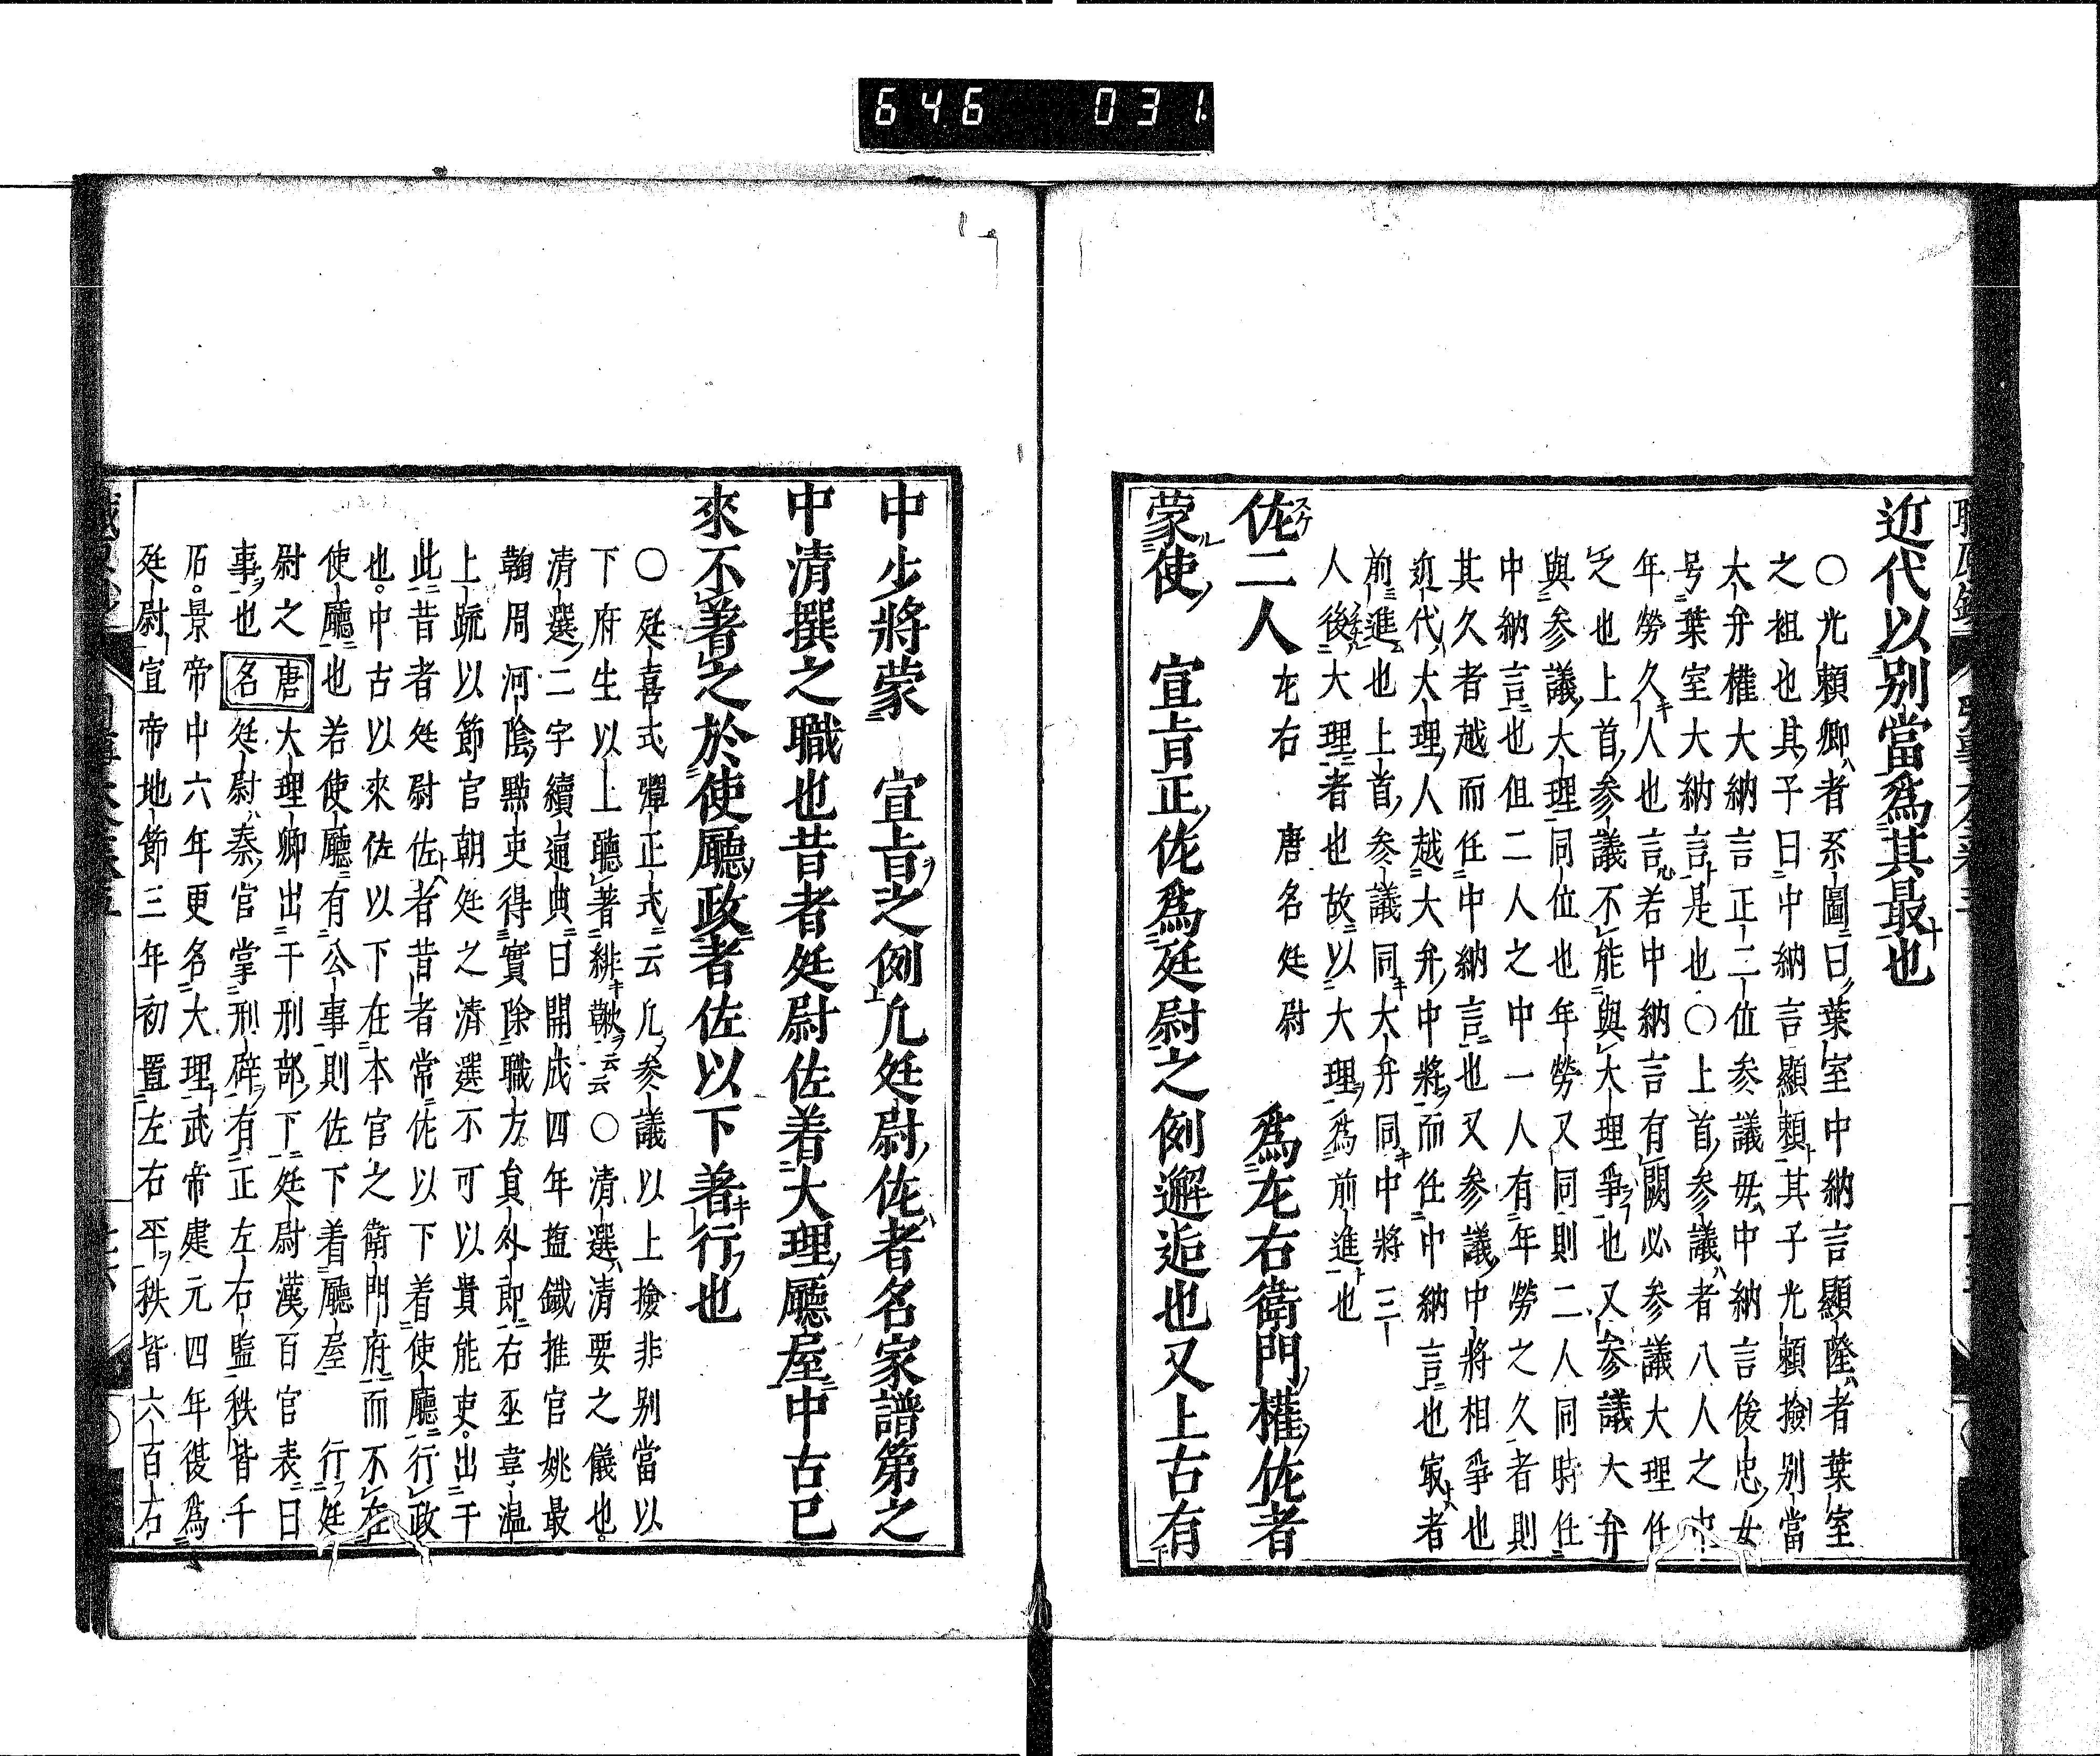 646 031
近代以別當爲其最也
〇光頼卿者系圖曰葉室中納言顯隆者葉室
之祖也其子曰中納言顯頼其子光頼撿別當
太弁權大納言正二位参議毋中納言俊忠女
号葉室大納言是也〇上首参議者八人之中
年勞久人也言若中納言有闕必参議大理任
之也上首参議不能與大理爭也又参議大弁
與参議大理同位也年勞又同則二人同時任
中納言也但二人之中一人有年勞之久者則
其久者越而任中納言也又参議中將相爭也
近代大理人越大弁中將而任中納言也㝡者
前進也上首参議同大弁同中將三
人後大理者也故以大理爲前進也
佐二人 左右 唐名廷尉 爲左右衛門權佐者
蒙使 宣旨正佐爲廷尉之例邂逅也又上古有
中少將蒙 宣旨之例凡廷尉佐者名家譜第之
中清撰之職也昔者廷尉佐着大理廳屋中古已
來不着之於使廳政者佐以下着行也
〇延喜式彈正式云凡参議以上撿非別當以
下府生以上聽著緋鞦云云〇清選清要之儀也
清選二字續通典曰開成四年塩鐵推官姚最
鞫周河陰黠吏得實除職方貟外郎右丞韋温
上疏以節官朝廷之清選不可以貴能吏出于
此昔者廷尉佐者昔者常佐以下着使廳行政
也中古以來佐以下在本官之衛門府而不在
使廳也若使廳有公事則佐下着廳屋 行廷
尉之 唐 大理卿出于刑部下廷尉漢百官表曰
事也 名 廷尉秦官掌刑辟有正左右監秩皆千
石景帝中六年更名大理武帝建元四年復爲
廷尉宣帝地節三年初置左右平秩皆六百石